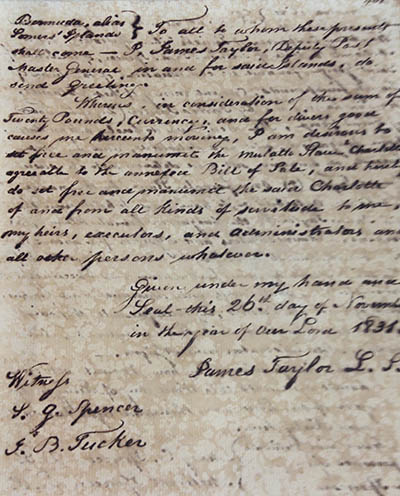 Bermuda, alias
Somers' Islands } To all to whom these presents
shall come — I, James Taylor, Deputy Post
Master General, in and for said Islands, do
send Greeting.
Whereas, in consideration of the sum of
Twenty Pounds, Currency, and for divers good
causes me hereunto moving, I am desirous to
set free and manumit the mulatto Slave Charlotte
agreeable to the annexed Bill of Sale, and
do set free and manumit the said Charlotte
of and from all kinds of servitude to me,
my heirs, executors, and administrators and
all other persons whatever.
Given under my hand and
Seal this 26th day of Novem
in the year of Our Lord 1831
James Taylor L. S.
Witness
S. G. Spencer
J. B. Tucker